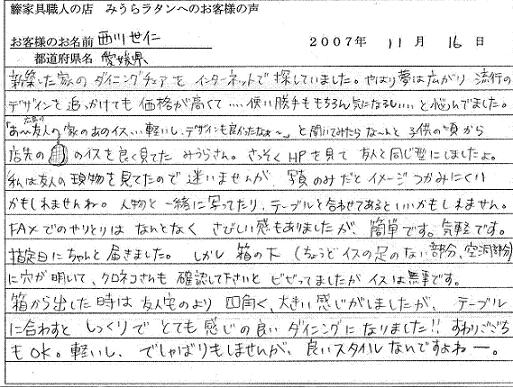 籐家具職人の店 みうらラタンへのお客様の声
お客様のお名前 西川世仁 2007年 11月 16日
都道府県名 愛媛県
新築した家のダイニングチェアをインターネットで探していました。やはり夢は広がり 流行の
デザインを追っかけても 価格が高くて…、使い勝手ももちろん気になるし…と悩んでました。
「あ〜友人の家のあのイス…軽いし、デザインも良かったなぁ〜」と聞いてみたら なんと 子供の頃から
店先の のイスを良く見てた みうらさん。さっそく HPを見て 友人と同じ型にしましたよ。
私は友人の現物を見てたので 迷いませんが、写真のみだと イメージつかみにくい
かもしれませんね。人物と一緒に写ってたり、テーブルと合わせてあるといいかもしれません。
FAXでのやりとりは なんとなく さびしい感もありましたが、簡単です。気軽です。
指定日にちゃんと届きました。しかし 箱の下(ちょうどイスの足のない部分、空洞部分)
に穴が明いて、クロネコさんも 確認して下さいと ビビッてましたが イスは無事です。
箱から出した時は 友人宅のより 四角く、大きい感じがしましたが、テーブル
に合わすと しっくりで とても感じの良い ダイニングに なりました!! すわりごごち
もOK。軽いし、でしゃばりもしませんが、良いスタイル なんですよねー。